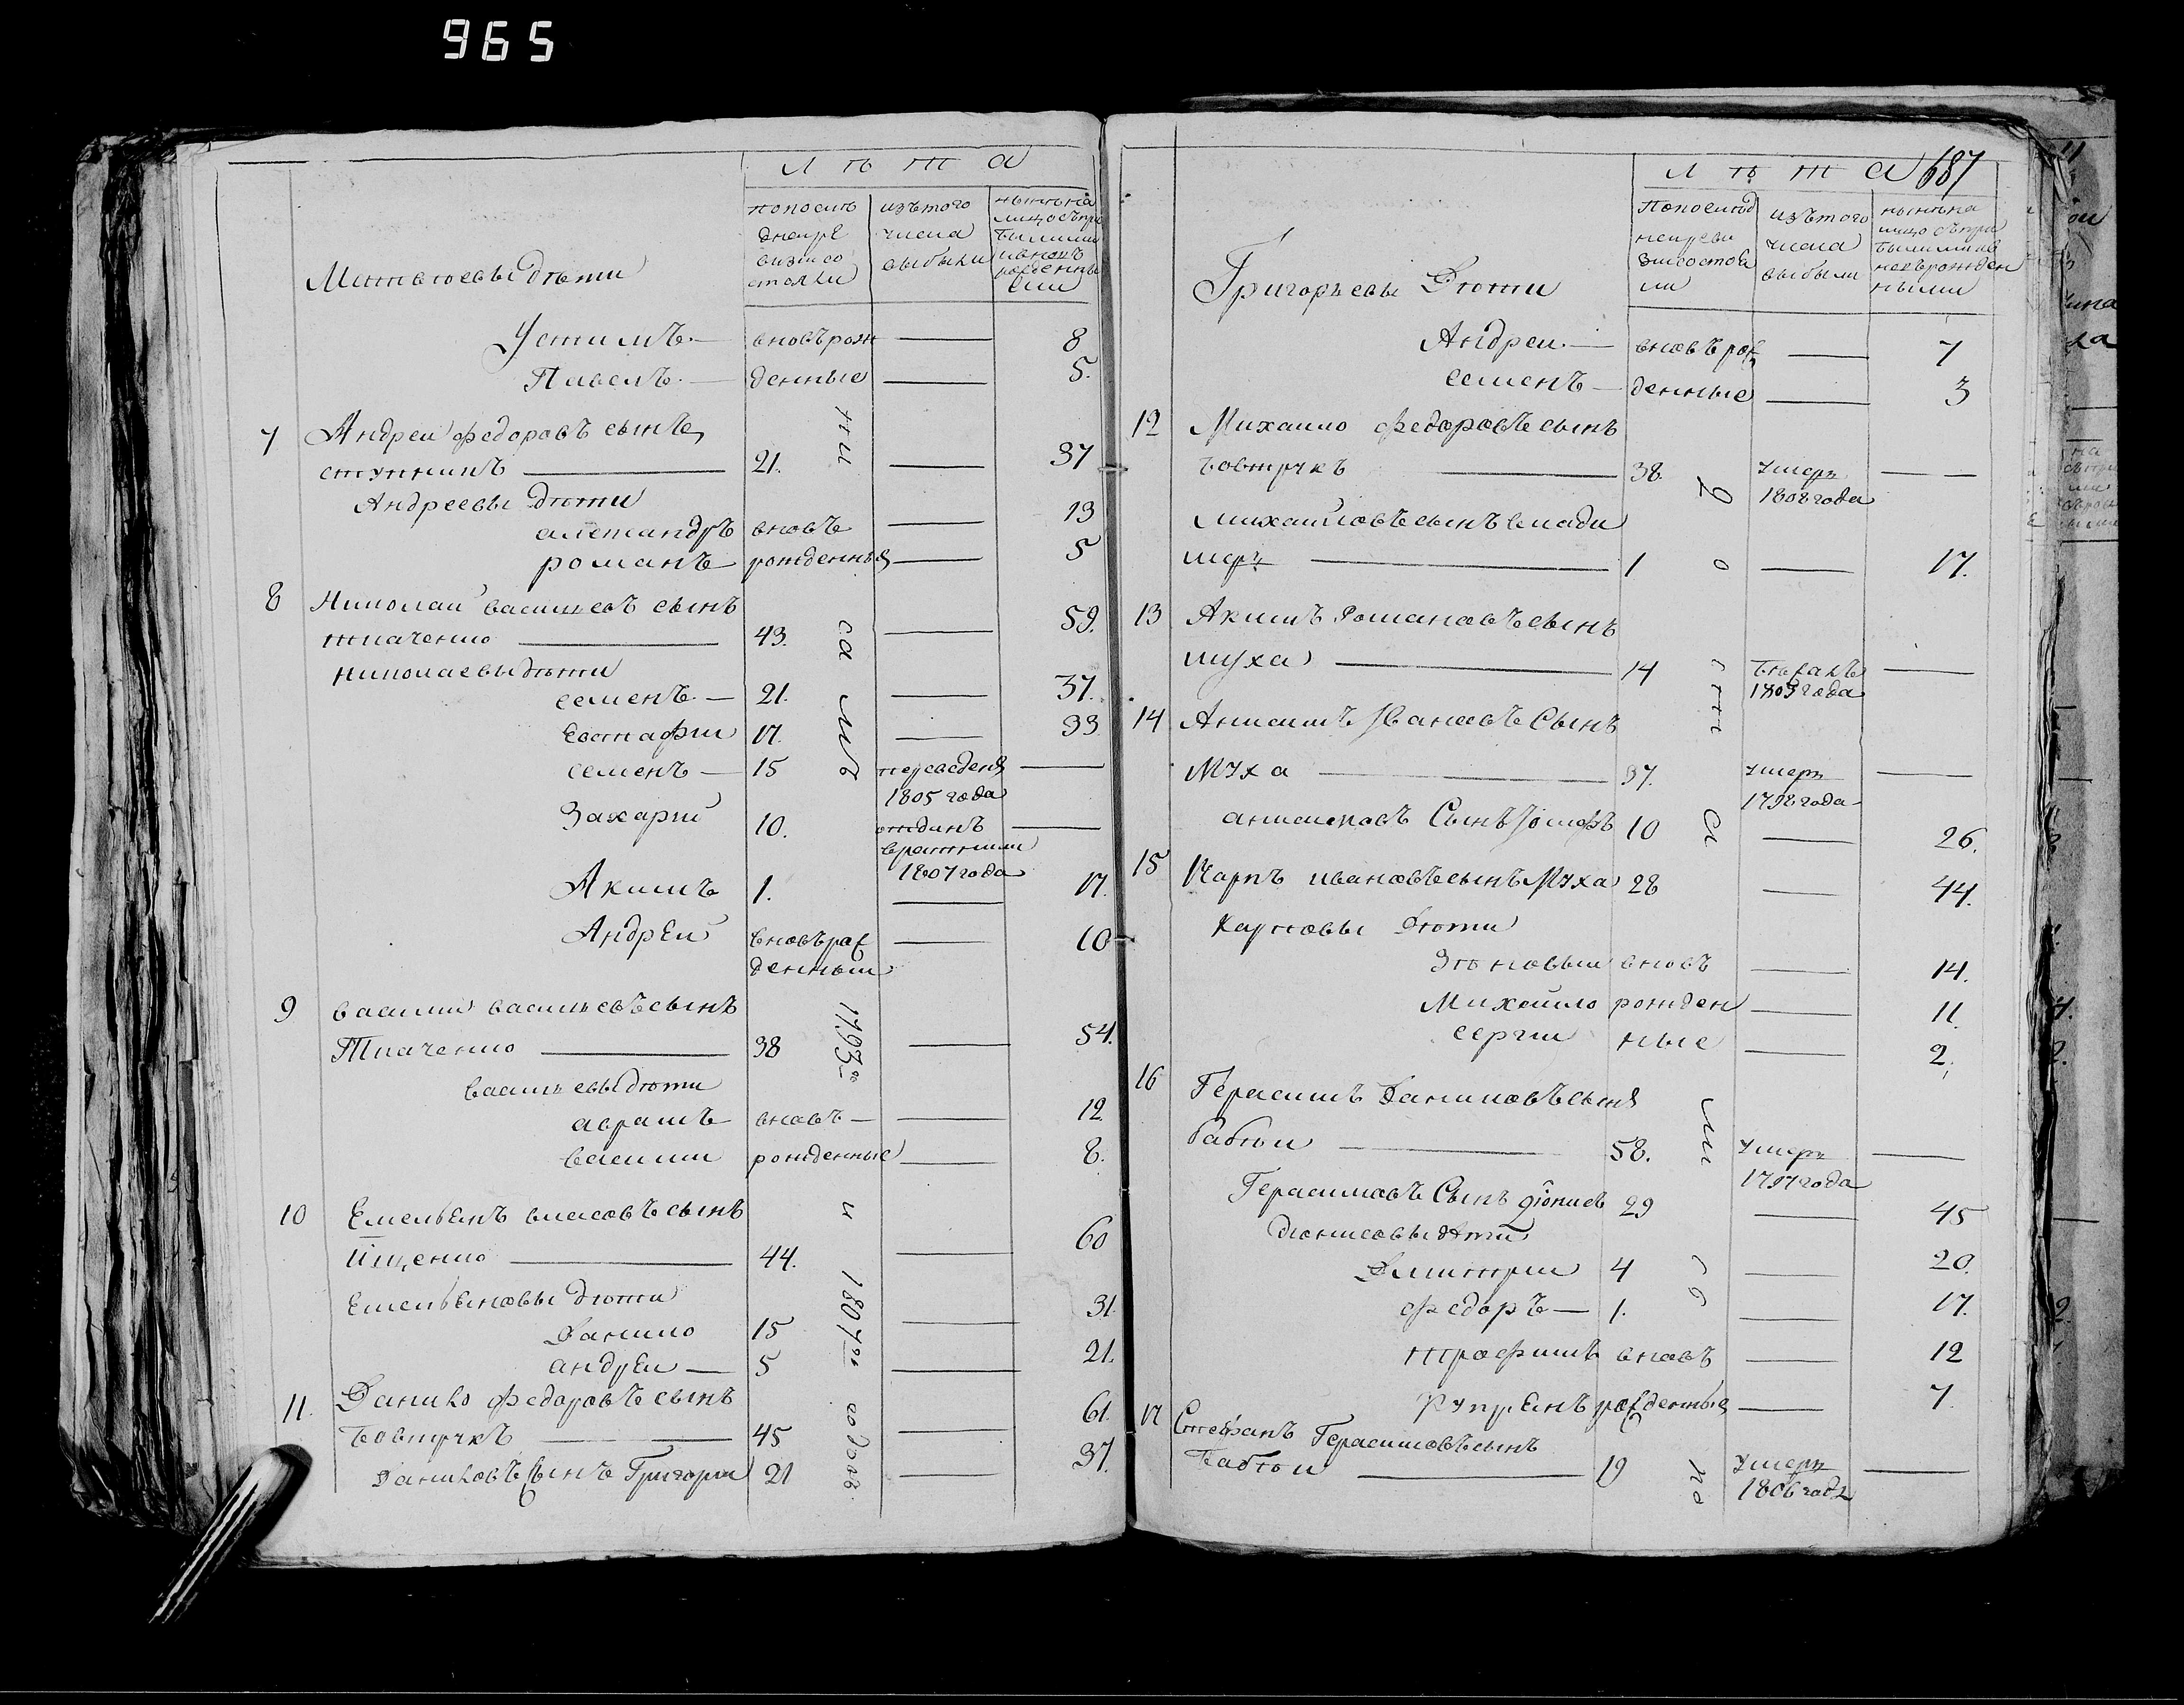 965
Л ѣ т а
по послѣ
дней ре
визiи со
стояли
изъ того
числа
выбыли
нынѣ на
лицо съ при
былыми
и вновь
рожденны
ми
Матвѣевы дѣти
Устимъ — вновь рож — 8
Павелъ — денные — 5.
7 Андрей федоровъ сынъ
ступникъ — 21. — 37
Андреевы дѣти
александръ вновь — 13
романъ рожденныя — 5
8 Николай васильевъ сынъ
ткаченко — 43. — 59.
николаевы дѣти
семенъ — 21. — 37.
Евстафiй 17. — 33
семенъ — 15 переведенъ —
1805 года
Захарiй 10. отданъ —
в рекруты
1807 года
Акимъ 1. — 17.
Андрей вновь рож — 10
денный
9 василий васильевъ сынъ
Ткаченко — 38 — 54.
васильевы дѣти
аврамъ вновь — — 12.
василий рожденные — 8.
10 Емельянъ власовъ сынъ
Ищенко — 44. — 60
Емельяновы дѣти
Данило 15 — 31.
андрей — 5 — 21.
11. Данило федоровъ сынъ
Бовтручкъ — 45 — 61.
Даниловъ Сынъ Григорий 21 — 37.
ни
самъ
1793го
и
1807го
годовъ
Л ѣ т а 687
По послѣд
ней реви
зiи состоя
ли
изъ того
числа
выбыли
нынѣ на
лицо съ при
былыми и в
новь рожден
ными
Григорьевы Дѣти
Андрей — вновь рож — 7
семенъ — денные — 3
12 Михайло федоровъ сынъ
бовтручкъ — 38. умеръ —
1808 года
михайловъ сынъ влади
меръ — 1 — 17.
13 Акимъ Романовъ сынъ
муха — 14 бѣжалъ —
1803 года
14 Анисимъ Ивановъ Сынъ
Муха — 37. умеръ —
1798 года
анисимовъ Сынъ Iосифъ 10 — 26.
15 Карпъ ивановъ сынъ Муха 28 — 44.
Карповы дѣти
Зѣновый вновь — 14.
Михайло рожден — 11.
сергий ные — 2.
16 Герасимъ Даниловъ сынъ
бабѣй — 58. умеръ —
1797 года
Герасимовъ Сынъ дiонисъ 29 — 45
дионисовы дѣти
Дмитрий 4 — 20.
федоръ — 1. — 17.
трофимъ вновь — 12
купрЕянъ рожденныя — 7.
17 Стефанъ Герасимовъ сынъ
бабѣй — 19 умеръ —
1806 года